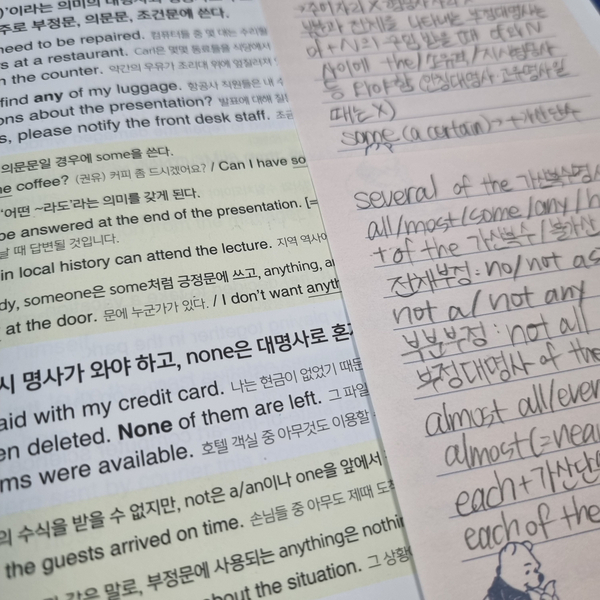 이라는 의미의
주로 부정문, 의문문, 조건문에 쓴다.
need to be repaired. 컴퓨터들 중 몇 대는
s at a restaurant. Carl은 몇몇 동료들을 식당에서
n the counter. 약간의 우유가 조리대 위에
find any of my luggage. 항공사 직원들은 내
ons about the presentation? 발표에 대해
s, please notify the front desk staff.
의문문일 경우에 some을 쓴다.
e coffee? (권유) 커피 좀 드시겠어요? / Can I have so
'어떤 ~라도'라는 의미를 갖게 된다.
be answered at the end of the presentation. [=
날 때 답변될 것입니다.
in local history can attend the lecture. 지역 역사
dy, someone은 some처럼 긍정문에 쓰고, anything, a
at the door. 문에 누군가가 있다. / I don't want anyt
시 명사가 와야 하고, none은 대명사로 혼
aid with my credit card. 나는 현금이 없었기 때문
en deleted. None of them are left. 그 파일
ms were available. 호텔 객실 중 아무것도 이용할
의 수식을 받을 수 없지만, not은 a/an이나 one을 앞에서
the guests arrived on time. 손님들 중 아무도 제때
같은 말로, 부정문에 사용되는 anything은 nothin
about the situation. 그 상황
부분과 전체를 나타내는 부정대명사는
사이에 the/소유격/지시형용사
때는 X)
some (a certain) → +가산단수
several of the 가산복수명사
all/most/some/any/h
+ of the 가산복수/불가산
전체부정: no/not as
not a/not any
부분부정: not all
부정대명사 of the
almost all/ever
almost (=near
each + 가산단
each of the